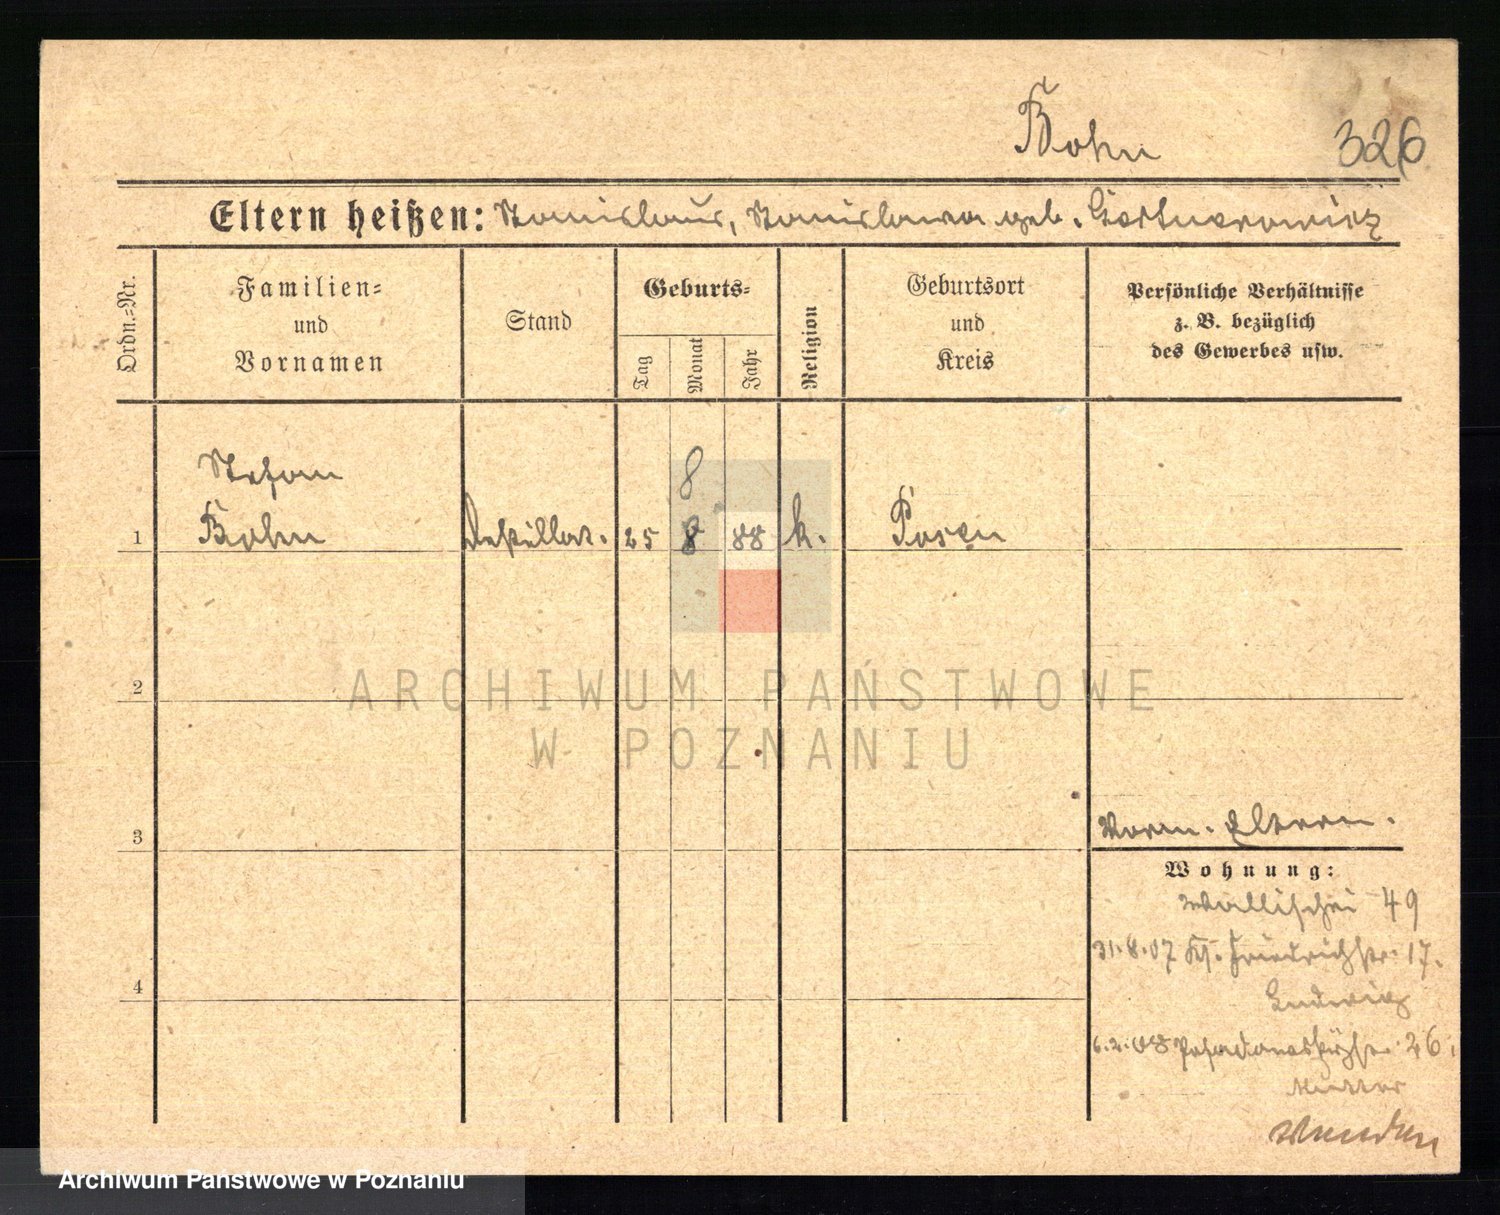 Bohn
326
Eltern heißen: Stanislaus, Stanislawa geb.
Ordn.=Nr.
Familien=
und
Vornamen
Stand
Geburts=
Tag
Monat
Jahr
Religion
Geburtsort
und
Kreis
Persönliche Verhältnisse
z. B. bezüglich
des Gewerbes usw.
Stefan
8
1 Bohn Destillat. 25 8 88 k. Posen
2
3
Eltern.
Wohnung:
Wallischei 49
31.8.07 Friedrichstr. 17.
Ludwig
6.2.08 26
Mutter
Wenden
4
ARCHIWUM PAŃSTWOWE
W POZNANIU
Archiwum Państwowe w Poznaniu